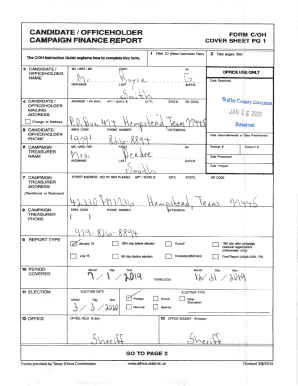 CANDIDATE / OFFICEHOLDER
CAMPAIGN FINANCE REPORT
FORM C/OH
COVER SHEET PG 1
The C/OH Instruction Guide explains how to complete this form.
1 Filer ID (Ethics Commission Filers)
2 Total pages filed:
3 CANDIDATE /
OFFICEHOLDER
NAME
MS / MRS / MR FIRST MI
Mr. G.
NICKNAME LAST SUFFIX
Smith
OFFICE USE ONLY
Date Received
Waller County Elections
JAN 2020
Received
4 CANDIDATE /
OFFICEHOLDER
MAILING
ADDRESS
Change of Address
ADDRESS / PO BOX; APT / SUITE #; CITY; STATE; ZIP CODE
P.O. Box Hempstead, Texas 77445
5 CANDIDATE/
OFFICEHOLDER
PHONE
AREA CODE PHONE NUMBER EXTENSION
(979) 826-8894
Date Hand-delivered or Date Postmarked
6 CAMPAIGN
TREASURER
NAME
MS / MRS / MR FIRST MI
Mrs. Deedee
NICKNAME LAST SUFFIX
Smith
Receipt # Amount $
Date Processed
Date Imaged
7 CAMPAIGN
TREASURER
ADDRESS
(Residence or Business)
STREET ADDRESS (NO PO BOX PLEASE); APT / SUITE #; CITY; STATE; ZIP CODE
FM 1736 Hempstead, Texas 77445
8 CAMPAIGN
TREASURER
PHONE
AREA CODE PHONE NUMBER EXTENSION
979-826-8894
9 REPORT TYPE
January 15
30th day before election
Runoff
15th day after campaign
treasurer appointment
(Officeholder Only)
July 15
8th day before election
Exceeded $500 limit
Final Report (Attach C/OH - FR)
10 PERIOD
COVERED
Month Day Year
7/1/2019
THROUGH
Month Day Year
12/31/2019
11 ELECTION
ELECTION DATE
Month Day Year
3/3/2020
ELECTION TYPE
Primary
Runoff
Other
Description
General
Special
12 OFFICE
OFFICE HELD (if any)
Sheriff
13 OFFICE SOUGHT (if known)
Sheriff
GO TO PAGE 2
Forms provided by Texas Ethics Commission
www.ethics.state.tx.us